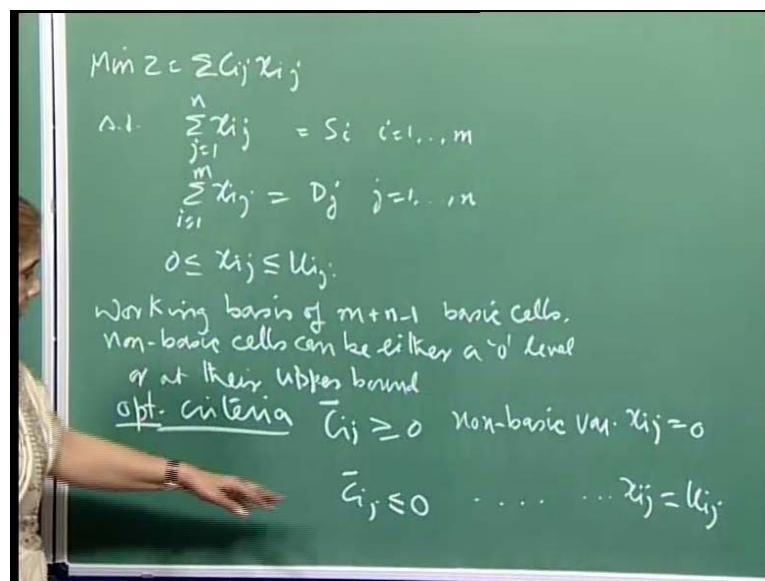 Min Z = Σ Cij xij
s.t. Σ_{j=1}^{n} xij = Si i=1,..,m
Σ_{i=1}^{m} xij = Dj j=1,..,n
0 ≤ xij ≤ uij.
Working basis of m+n-1 basic cells.
non-basic cells can be either a '0' level
or at their upper bound
opt. criteria C̄ij ≥ 0 non-basic var. xij = 0
C̄ij ≤ 0 .... ... xij = uij